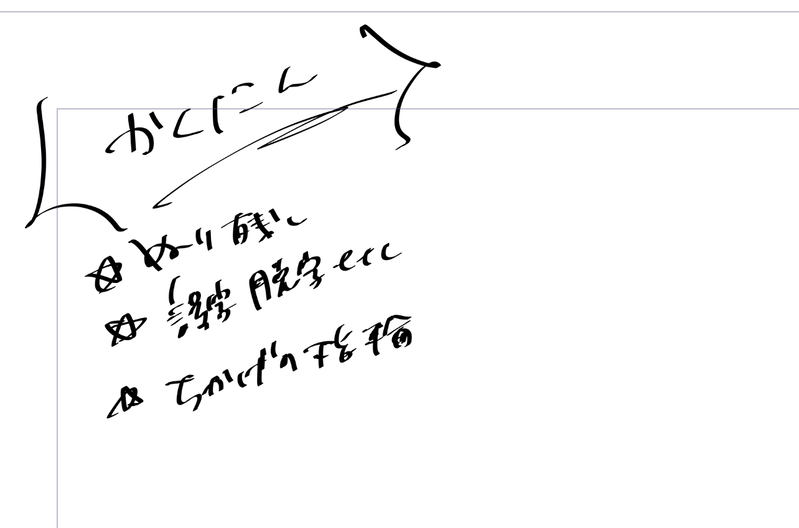 かくにん
☆ぬり残し
☆誤字脱字etc
☆ちかげの指輪